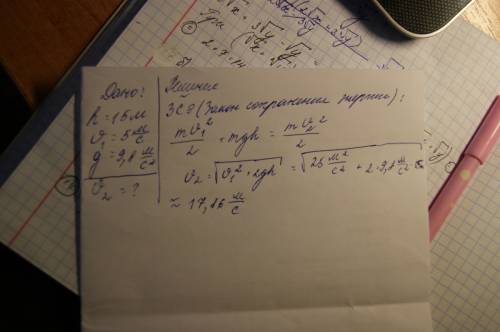 Дано:
h = 15м
v₁ = 5 м/с
g = 9,8 м/с²
v₂ = ?
Решение
ЗСЭ (Закон сохранения энергии):
mv₁²/2 + mgh = mv₂²/2
v₂ = √(v₁² + 2gh) = √(25 м²/с² + 2·9,8 м/с²
≈ 17,86 м/с